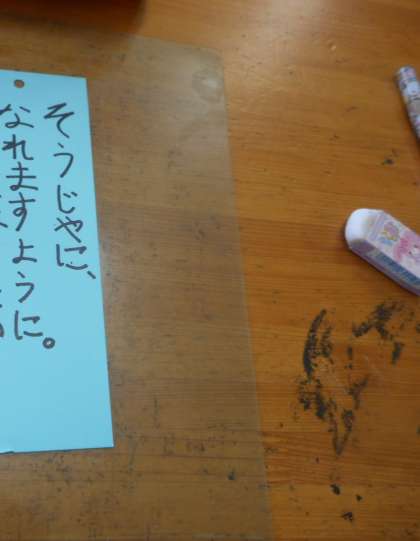 そうじやに、
なれますように。